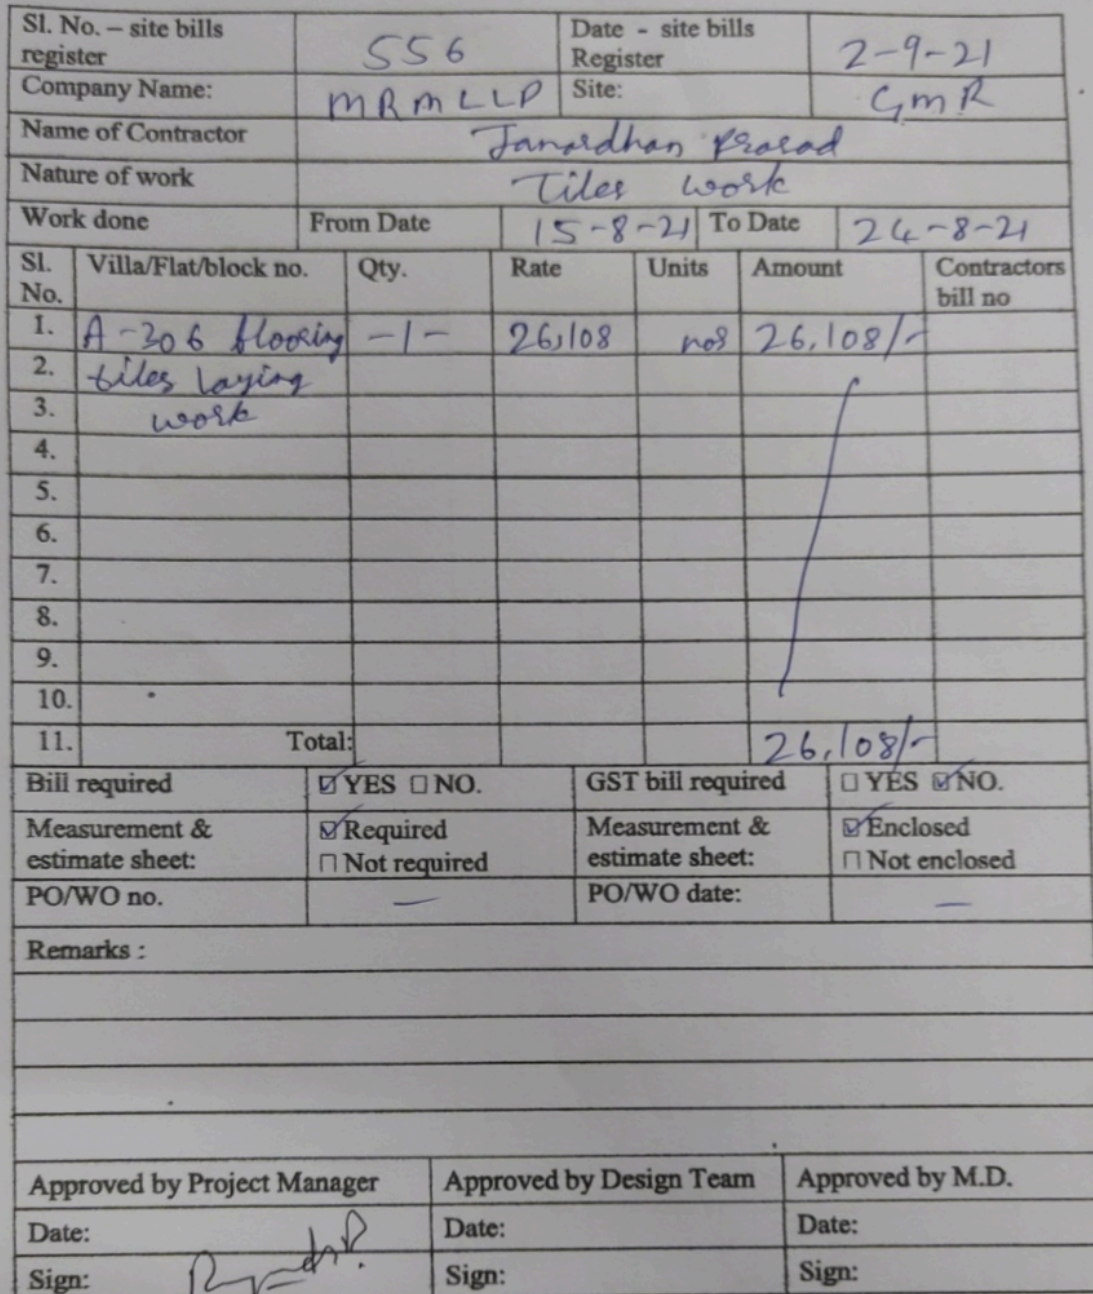 Sl. No. – site bills register 556 Date - site bills Register 2-9-21
Company Name: MRMLLP Site: GMR
Name of Contractor Janardhan Prasad
Nature of work Tiles work
Work done From Date 15-8-21 To Date 24-8-21
Sl. No. Villa/Flat/block no. Qty. Rate Units Amount Contractors bill no
1. A-306 flooring -1- 26,108 nos 26,108/-
2. tiles laying
3. work
4.
5.
6.
7.
8.
9.
10.
11. Total: 26,108/-
Bill required ☑ YES ☐ NO. GST bill required ☐ YES ☑ NO.
Measurement & estimate sheet: ☑ Required ☐ Not required Measurement & estimate sheet: ☑ Enclosed ☐ Not enclosed
PO/WO no. — PO/WO date: —
Remarks :
Approved by Project Manager Approved by Design Team Approved by M.D.
Date: Date: Date:
Sign: Sign: Sign: